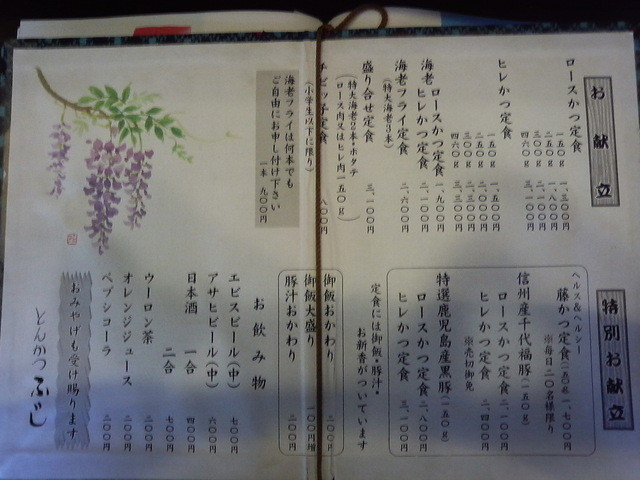 お献立
ロースかつ定食
一五〇g 一、三〇〇円
二五〇g 一、八〇〇円
三〇〇g 二、一〇〇円
四六〇g 三、一〇〇円
ヒレかつ定食
一五〇g 一、五〇〇円
二五〇g 二、〇〇〇円
三〇〇g 二、三〇〇円
四六〇g 三、三〇〇円
海老ロースかつ定食 一、九〇〇円
海老ヒレかつ定食 二、一〇〇円
海老フライ定食 二、六〇〇円
(特大海老3本)
盛り合せ定食 三、一〇〇円
(特大海老2本・ホタテ
ロース肉又はヒレ肉一五〇g)
定食 八〇〇円
(小学生以下に限り)
海老フライは何本でも
ご自由にお申し付け下さい
一本 九〇〇円
特別お献立
ヘルス&ヘルシー
藤かつ定食(一五〇g) 一、七〇〇円
※毎日20名様限り
信州産千代福豚(一五〇g)
ロースかつ定食 二、一〇〇円
ヒレかつ定食 二、四〇〇円
※売切御免
特選鹿児島産黒豚(一五〇g)
ロースかつ定食 二、八〇〇円
ヒレかつ定食 三、一〇〇円
定食には御飯・豚汁・
お新香がついています
御飯おかわり 二〇〇円
御飯大盛り 一〇〇円増
豚汁おかわり 二〇〇円
お飲み物
エビスビール(中) 七〇〇円
アサヒビール(中) 六〇〇円
日本酒 一合 四〇〇円
二合 七〇〇円
ウーロン茶 二〇〇円
オレンジジュース 二〇〇円
ペプシコーラ 二〇〇円
おみやげも受け賜ります
とんかつ ふじ